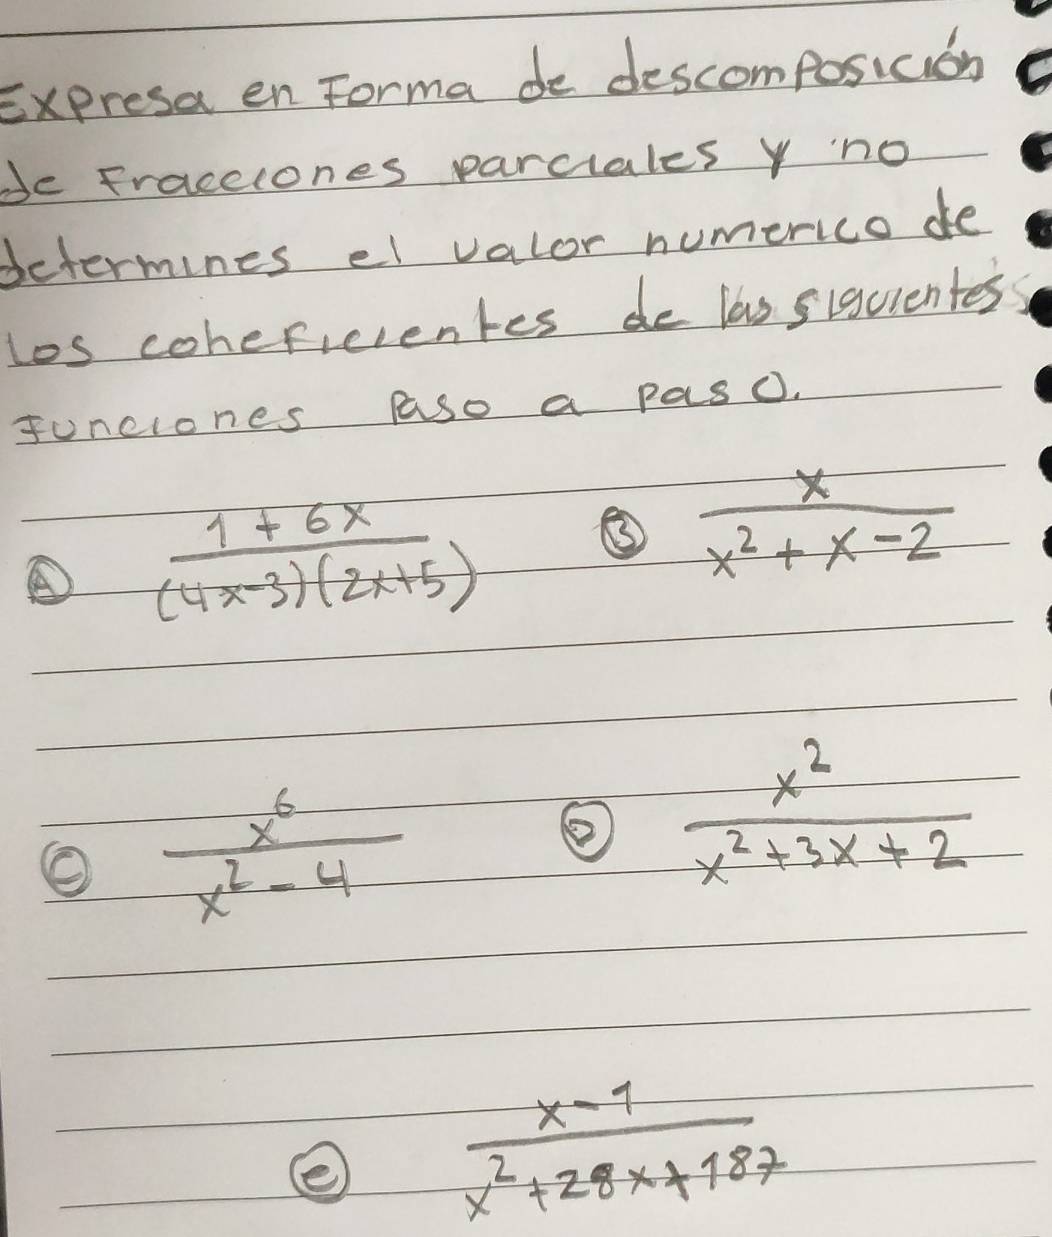 Expresa en Forma de descomposición
de Fracciones parciales y no
determines el valor numerico de
los coheficientes de las siguientes
Funciones Paso a paso.
Ⓐ (1 + 6x)/((4x-3)(2x+5)) Ⓑ x/(x² + x - 2)
Ⓒ x⁶/(x² - 4) Ⓓ x²/(x² + 3x + 2)
ⓔ (x - 1)/(x² + 28x + 187)